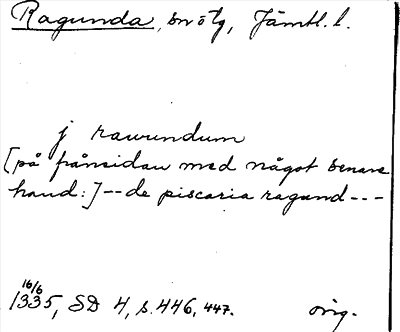 Ragunda, sn ö tg, Jämtl. l.
j rawundum
[på frånsidan med något senare
hand:] -- de piscaria ragund ---
16/6
1335, SD 4, s. 446, 447. orig.